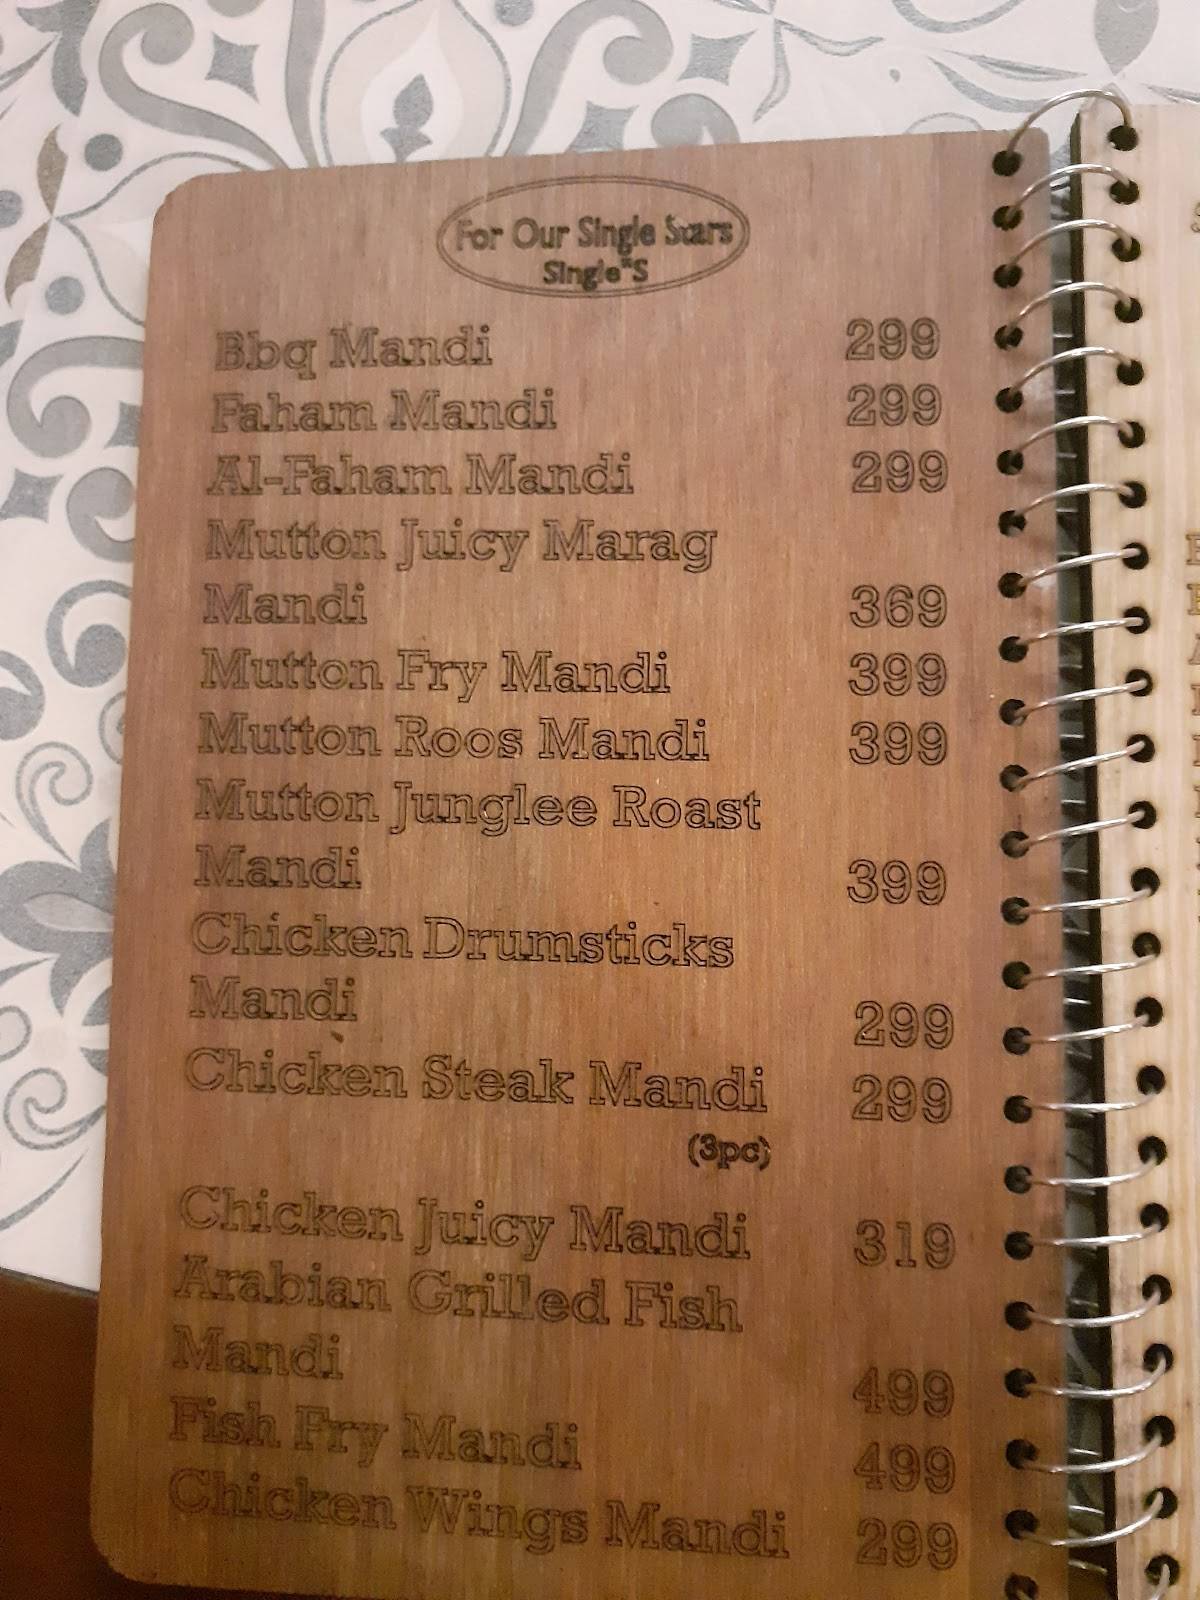 For Our Single Stars
Single"S
Bbq Mandi 299
Faham Mandi 299
Al-Faham Mandi 299
Mutton Juicy Marag
Mandi 369
Mutton Fry Mandi 399
Mutton Roos Mandi 399
Mutton Junglee Roast
Mandi 399
Chicken Drumsticks
Mandi 299
Chicken Steak Mandi 299
(3pc)
Chicken Juicy Mandi 319
Arabian Grilled Fish
Mandi 499
Fish Fry Mandi 499
Chicken Wings Mandi 299